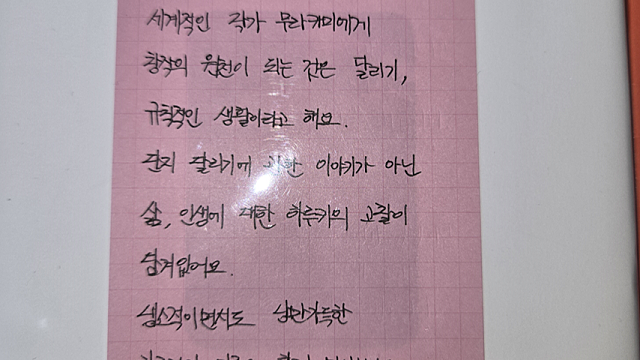 세계적인 작가 무라카미에게
창작의 원천이 되는 것은 달리기,
규칙적인 생활이라고 해요.
단지 달리기에 대한 이야기가 아닌
삶, 인생에 대한 하루키의 고찰이
담겨있어요.
냉소적이면서도 낭만가득한